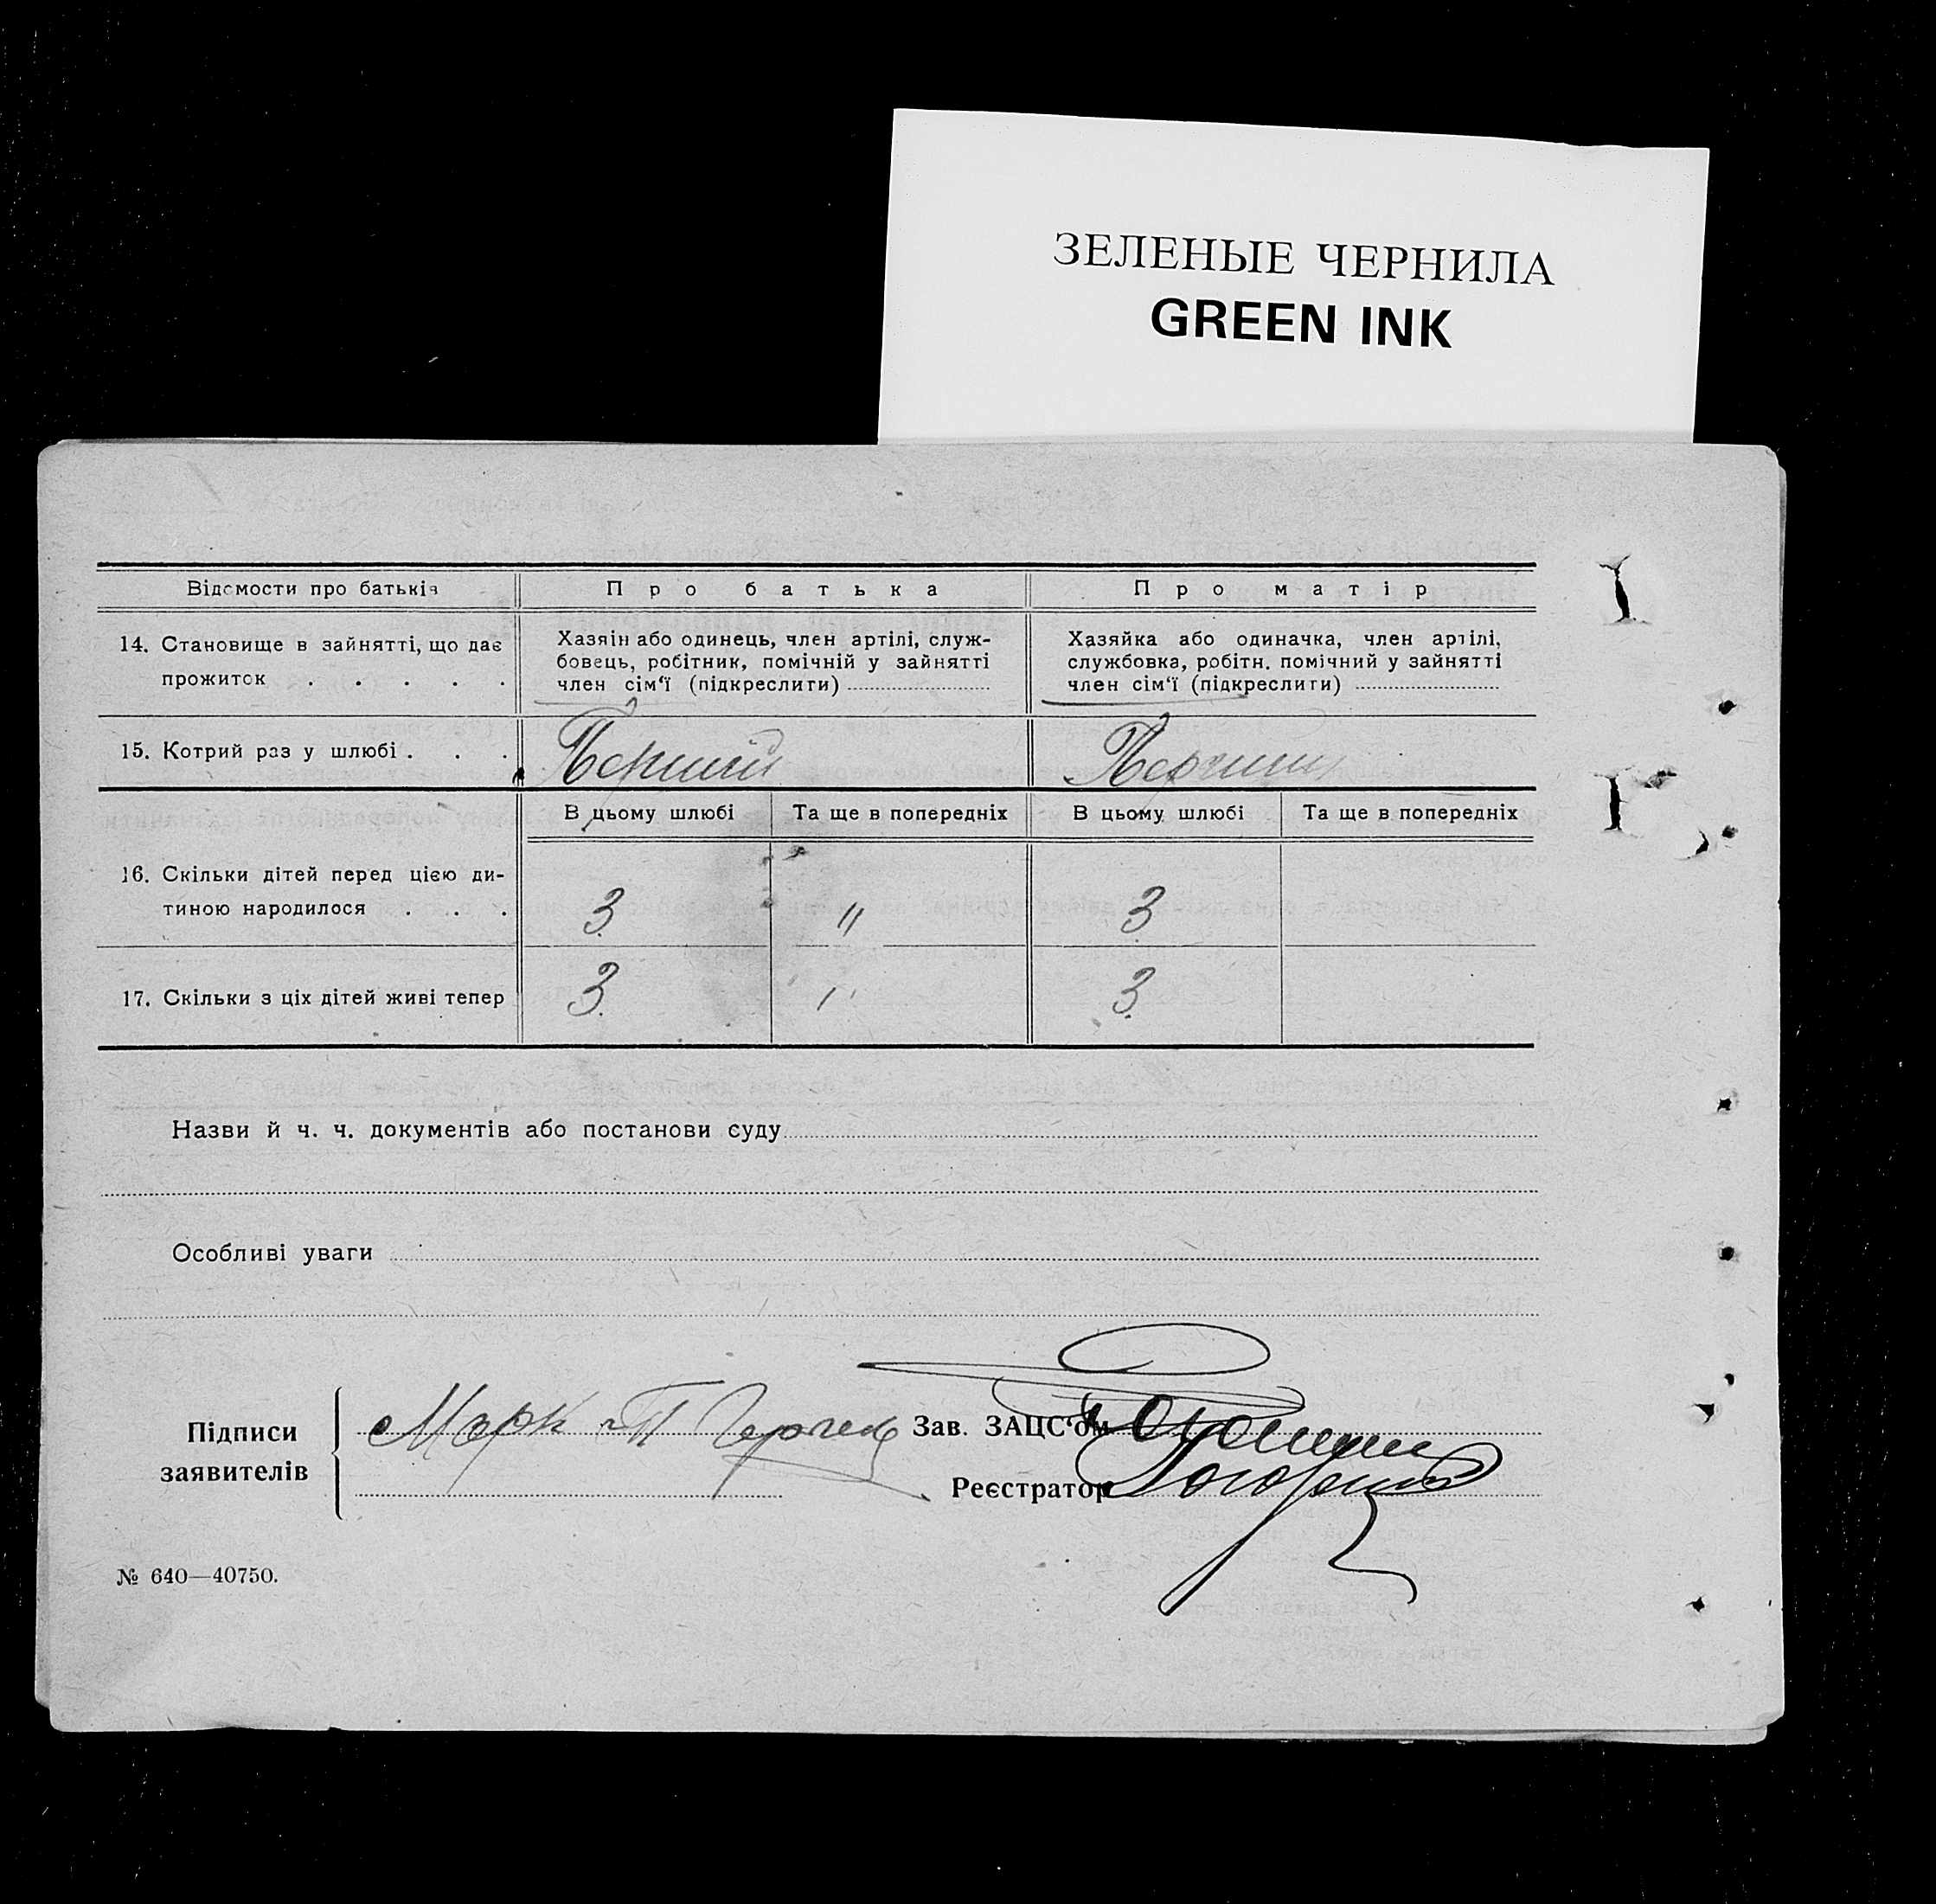 ЗЕЛЕНЫЕ ЧЕРНИЛА
GREEN INK
Відомости про батьків
Про батька
Про матір
14. Становище в зайнятті, що дає
прожиток . . . . .
Хазяін або одинець, член артілі, служ-
бовець, робітник, помічній у зайнятті
член сім'ї (підкреслити)
Хазяйка або одиначка, член артілі,
службовка, робітн. помічний у зайнятті
член сім'ї (підкреслити)
15. Котрий раз у шлюбі . . .
Перший
Перший
В цьому шлюбі
Та ще в попередніх
В цьому шлюбі
Та ще в попередніх
16. Скільки дітей перед цією ди-
тиною народилося . . .
3
"
3
17. Скільки з ціх дітей живі тепер
3
"
3
Назви й ч. ч. документів або постанови суду
Особливі уваги
Підписи
заявителів
Марк
Зав. ЗАЦС'ом
Реєстратор
№ 640—40750.